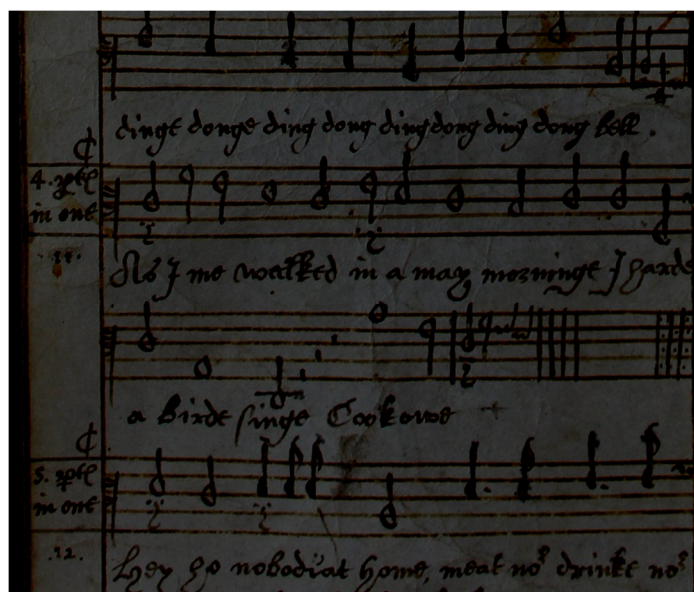 dinge donge ding dong ding dong ding dong bell.
4. ptꝭ
in one
.11.
As I me walked in a may morninge I harde
a Birde singe Cookowe
5. ptꝭ
in one
.12.
Hey ho nobodi at home, meat nor drinke nor